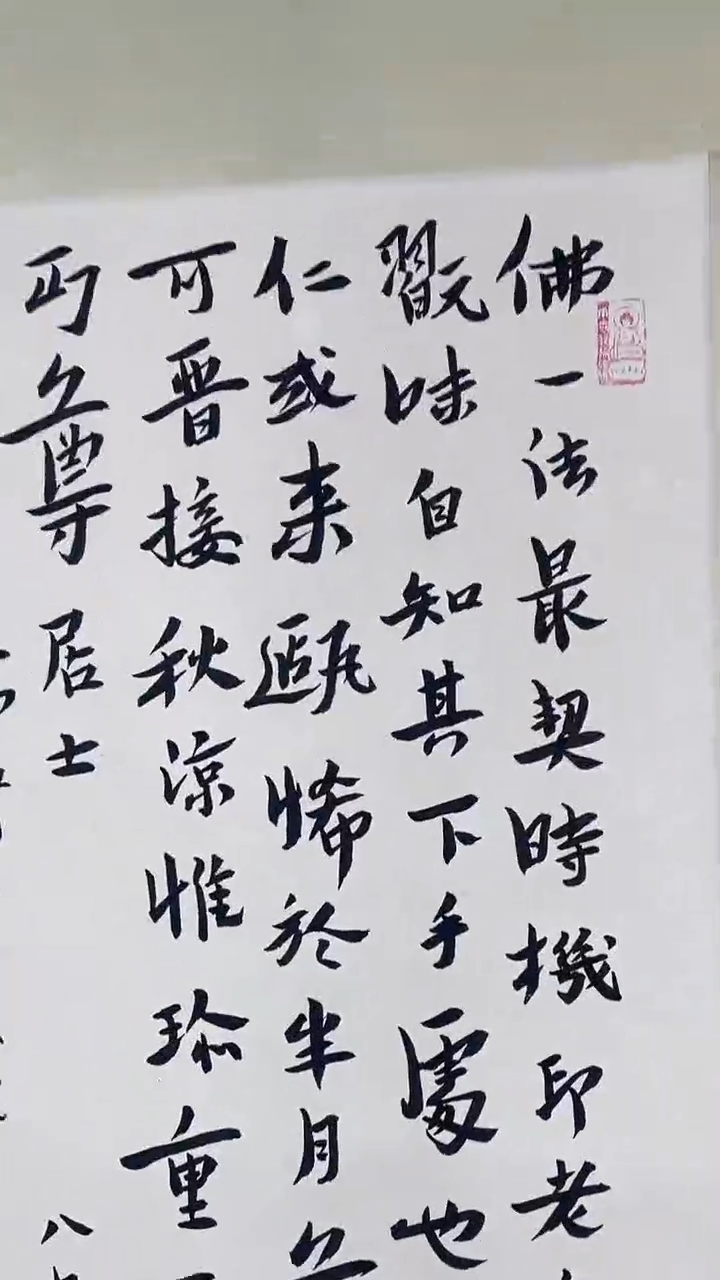 佛一法最契時機印老
翫味自知其下手處也
仁或来甌悕於半月
可晋接秋涼惟珍重
丏尊居士
八